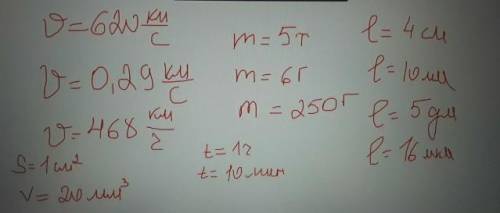 υ = 620 км/с
υ = 0,29 км/с
υ = 468 км/г
S = 1 см²
V = 20 мм³
m = 5т
m = 6г
m = 250г
t = 1г
t = 10 мин
l = 4 см
l = 10 мм
l = 5 дм
l = 16 мкм